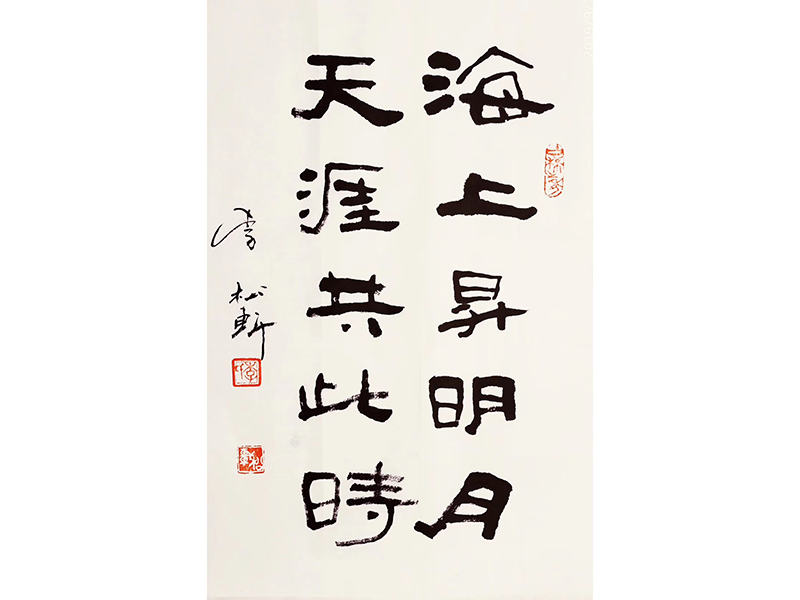 海上昇明月
天涯共此時
李松軒